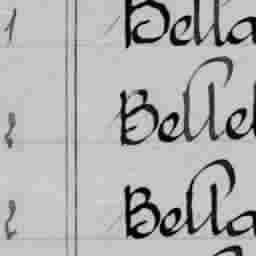 1 Bella
2 Bellel
2 Bella